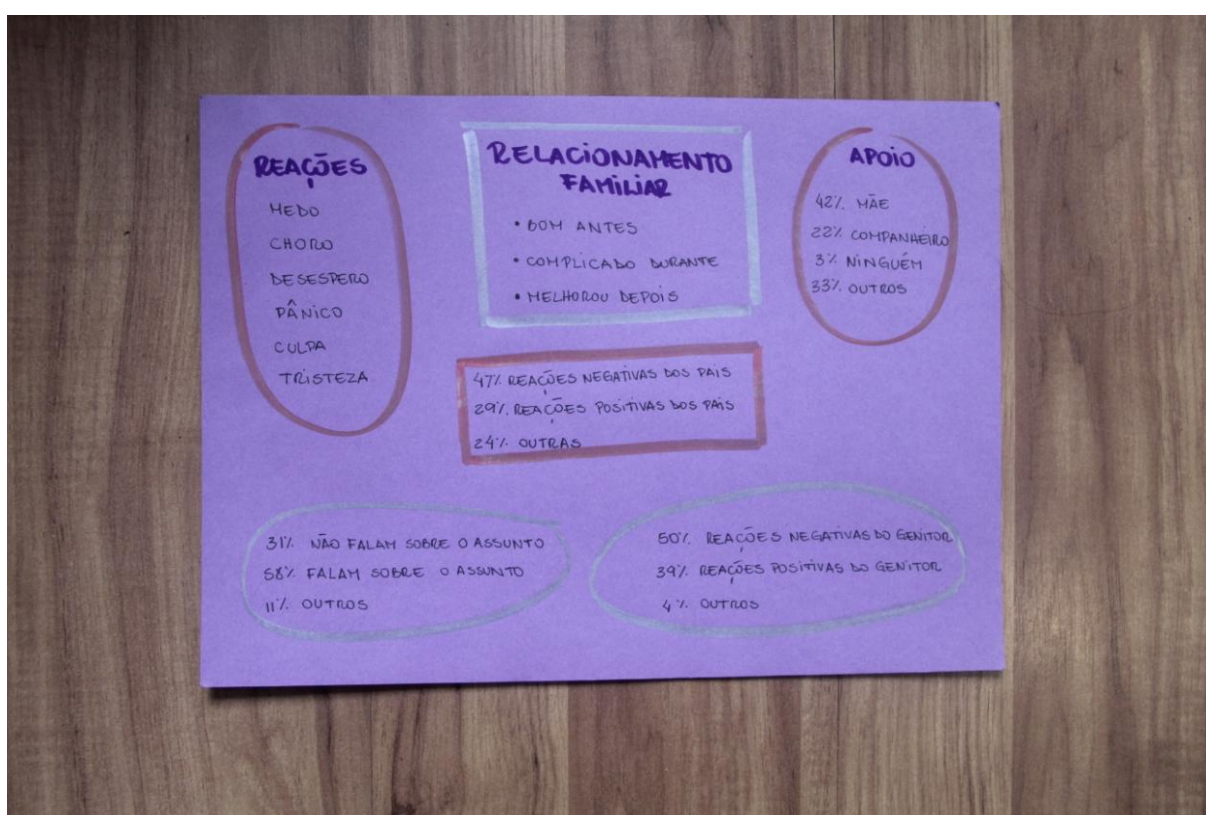 REAÇÕES
MEDO
CHORO
DESESPERO
PÂNICO
CULPA
TRISTEZA
RELACIONAMENTO
FAMILIAR
• BOM ANTES
• COMPLICADO DURANTE
• MELHOROU DEPOIS
APOIO
42% MÃE
22% COMPANHEIRO
3% NINGUÉM
33% OUTROS
47% REAÇÕES NEGATIVAS DOS PAIS
29% REAÇÕES POSITIVAS DOS PAIS
24% OUTRAS
31% NÃO FALAM SOBRE O ASSUNTO
58% FALAM SOBRE O ASSUNTO
11% OUTROS
50% REAÇÕES NEGATIVAS DO GENITOR
39% REAÇÕES POSITIVAS DO GENITOR
4% OUTROS